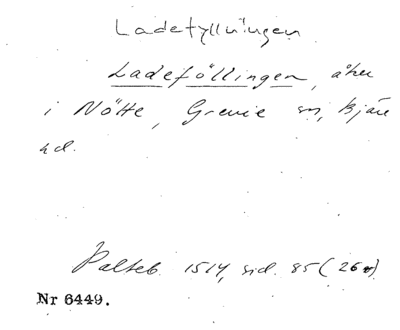 Ladefyllningen
Ladeföllingen, åker
i Nötte, Grevie sn, Bjäre
hd.
Palteb. 1514, sid. 85 (26v)
Nr 6449.